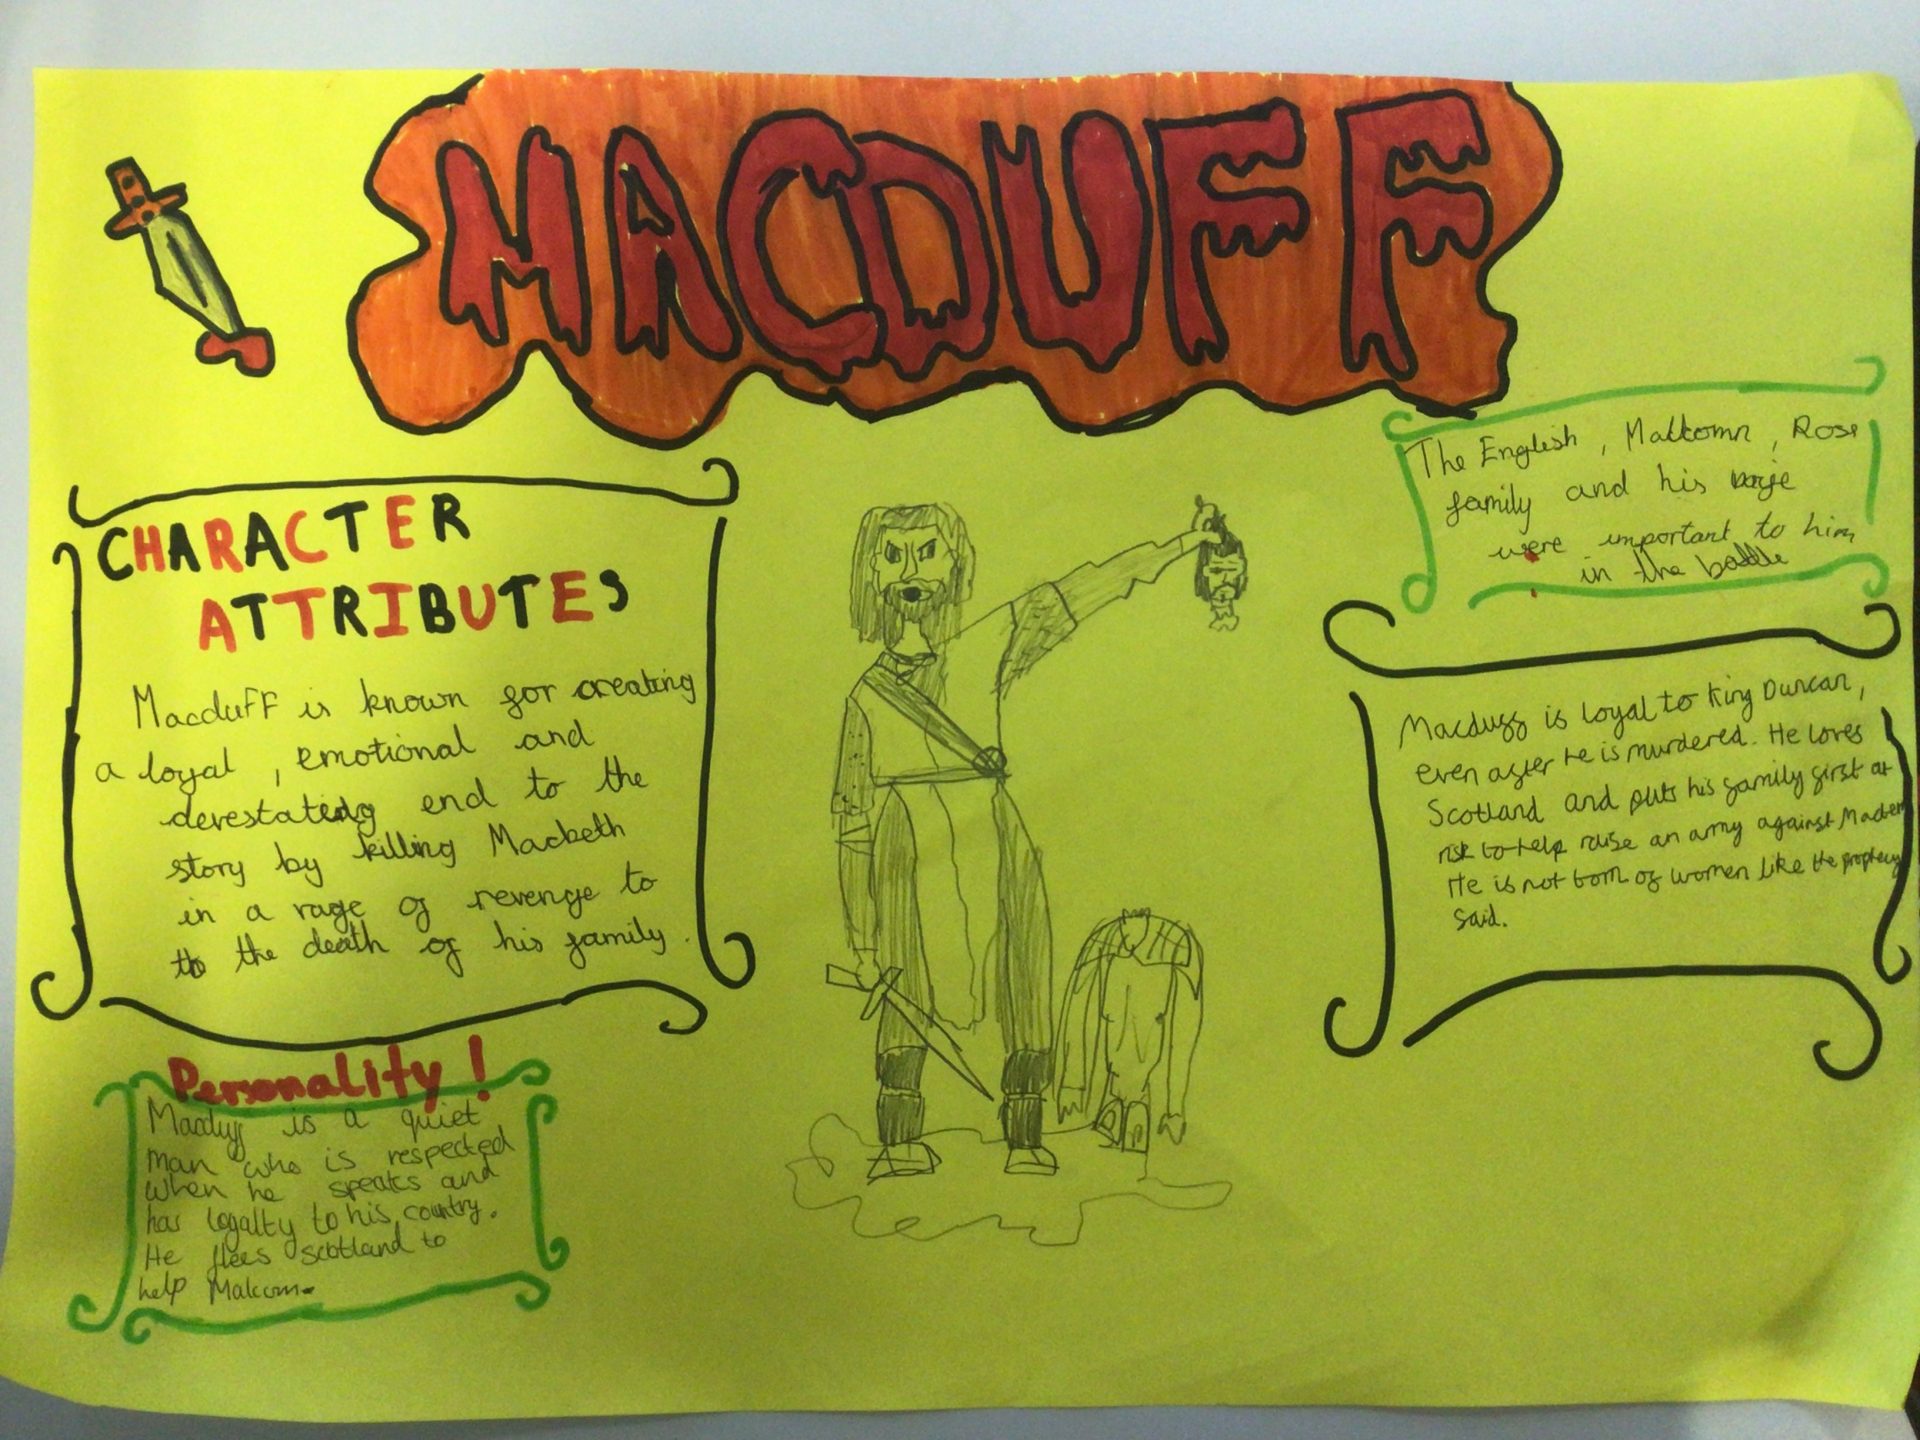 MACDUFF
CHARACTER
ATTRIBUTES
Macduff is known for creating
a loyal , emotional and
devestating end to the
story by killing Macbeth
in a rage of revenge to
to the death of his family.
Personality!
Macduff is a quiet
man who is respected
when he speaks and
has loyalty to his country.
He flees scotland to
help Malcom.
The English , Malcomn , Ross
family and his wife
were important to him
in the battle
Macduff is loyal to King Duncan,
even after he is murdered. He loves
Scotland and puts his family first at
risk to help raise an army against
He is not born of women like the prophecy
said.